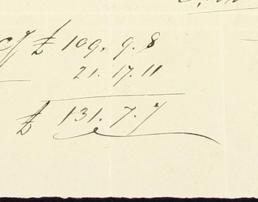 £ 109. 9. 8
21. 17. 11
£ 131. 7. 7